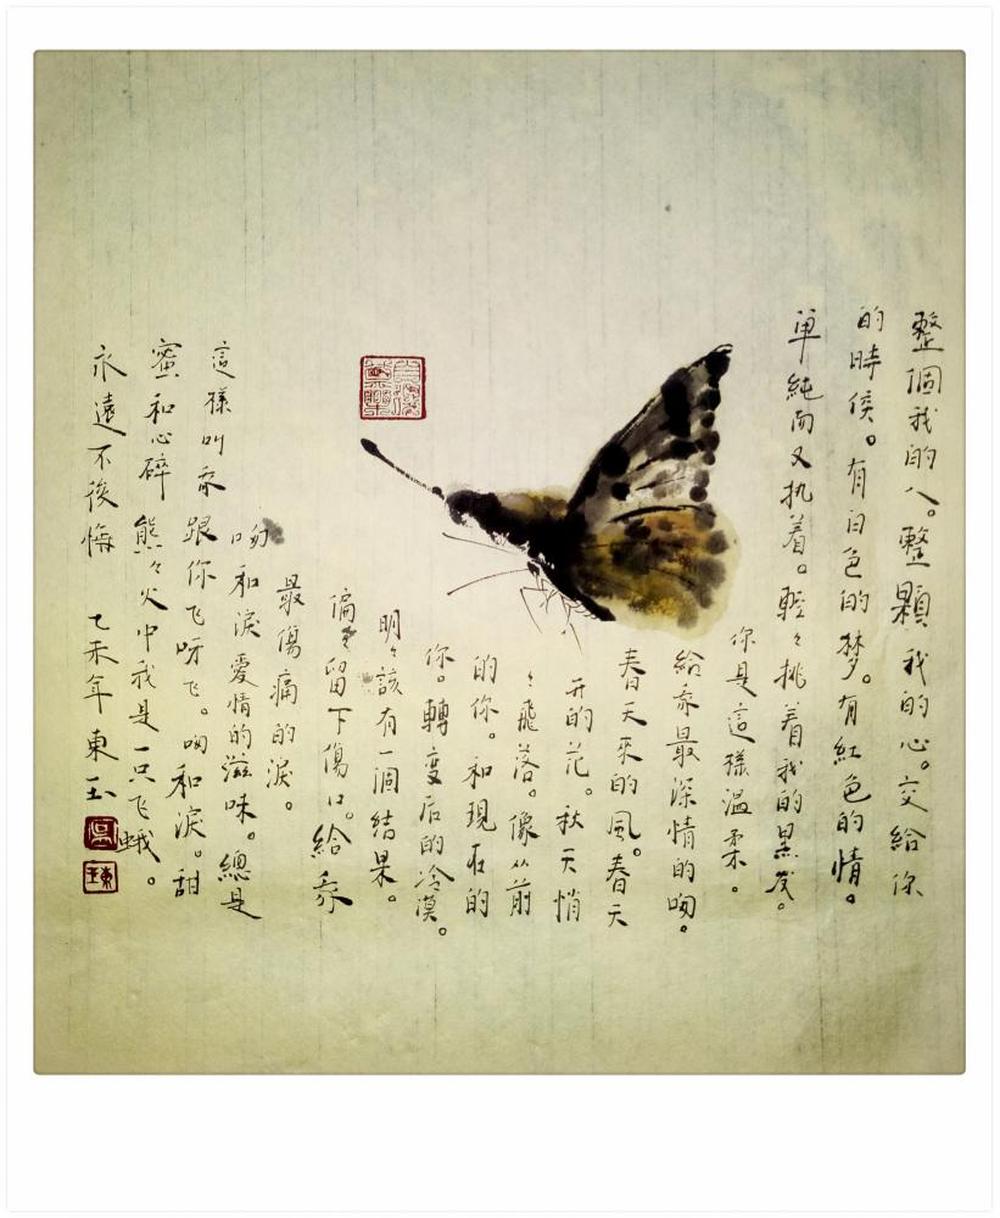 整個我的人。整顆我的心。交給你
的時候。有白色的梦。有紅色的情。
单純而又执着。輕々挑着我的黑发。
你是這樣温柔。
給我最深情的吻。
春天來的風。春天
开的花。秋天悄
々飛落。像从前
的你。和現在的
你。轉变后的冷漠。
明々該有一個結果。
偏留下傷口。給我
最傷痛的淚。
吻和淚愛情的滋味。總是
這樣叫我跟你飞呀飞。吻和淚。甜
蜜和心碎 熊々火中我是一只飞蛾。
永遠不後悔 乙未年 東玉